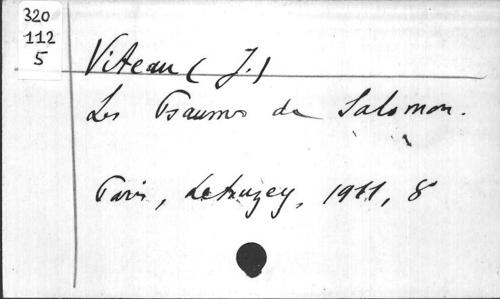 320
112
5
Viteau (J.)
Les Psaumes de Salomon.
Paris, Letouzey, 1911, 8